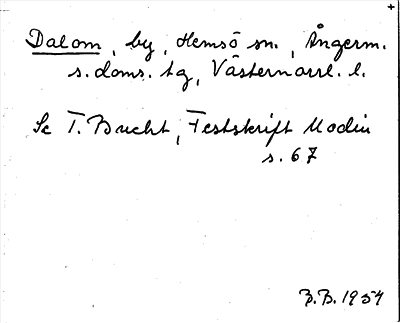 Dalom, by, Hemsö sn., Ångerm.
s. doms. tg, Västernorrl. l.
Se T. Bucht, Festskrift Modin
s. 67
B.B. 1954